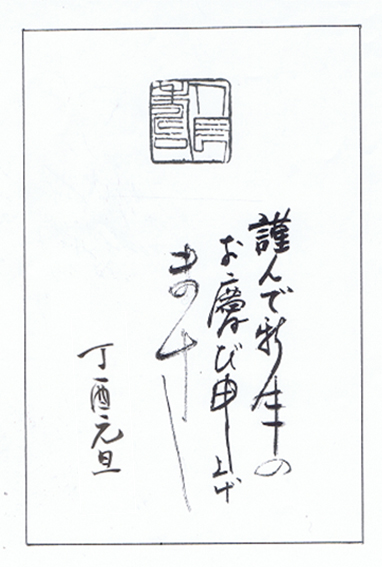 謹んで新年の
お慶び申し上げ
ます
丁酉元旦